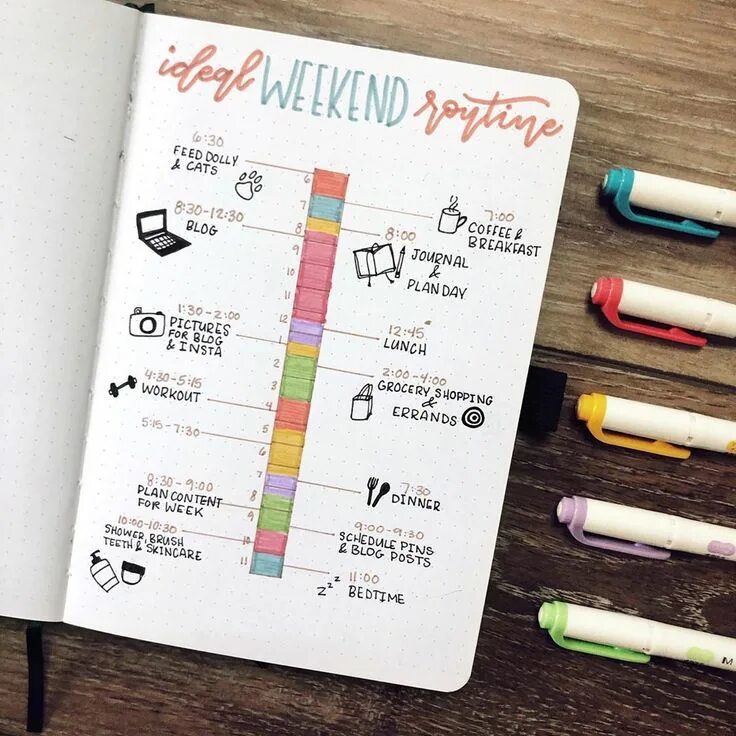 ideal WEEKEND routine
6:30
FEED DOLLY
& CATS
7:00
COFFEE &
BREAKFAST
8:30-12:30
BLOG
8:00
JOURNAL
&
PLAN DAY
1:30-2:00
PICTURES
FOR BLOG
& INSTA
12:45
LUNCH
2:00-4:00
GROCERY SHOPPING
&
ERRANDS
4:30-5:15
WORKOUT
5:15-7:30
7:30
DINNER
8:30-9:00
PLAN CONTENT
FOR WEEK
9:00-9:30
SCHEDULE PINS
& BLOG POSTS
10:00-10:30
SHOWER, BRUSH
TEETH & SKINCARE
11:00
z z z BEDTIME
6
7
8
9
10
11
12
1
2
3
4
5
6
7
8
9
10
11